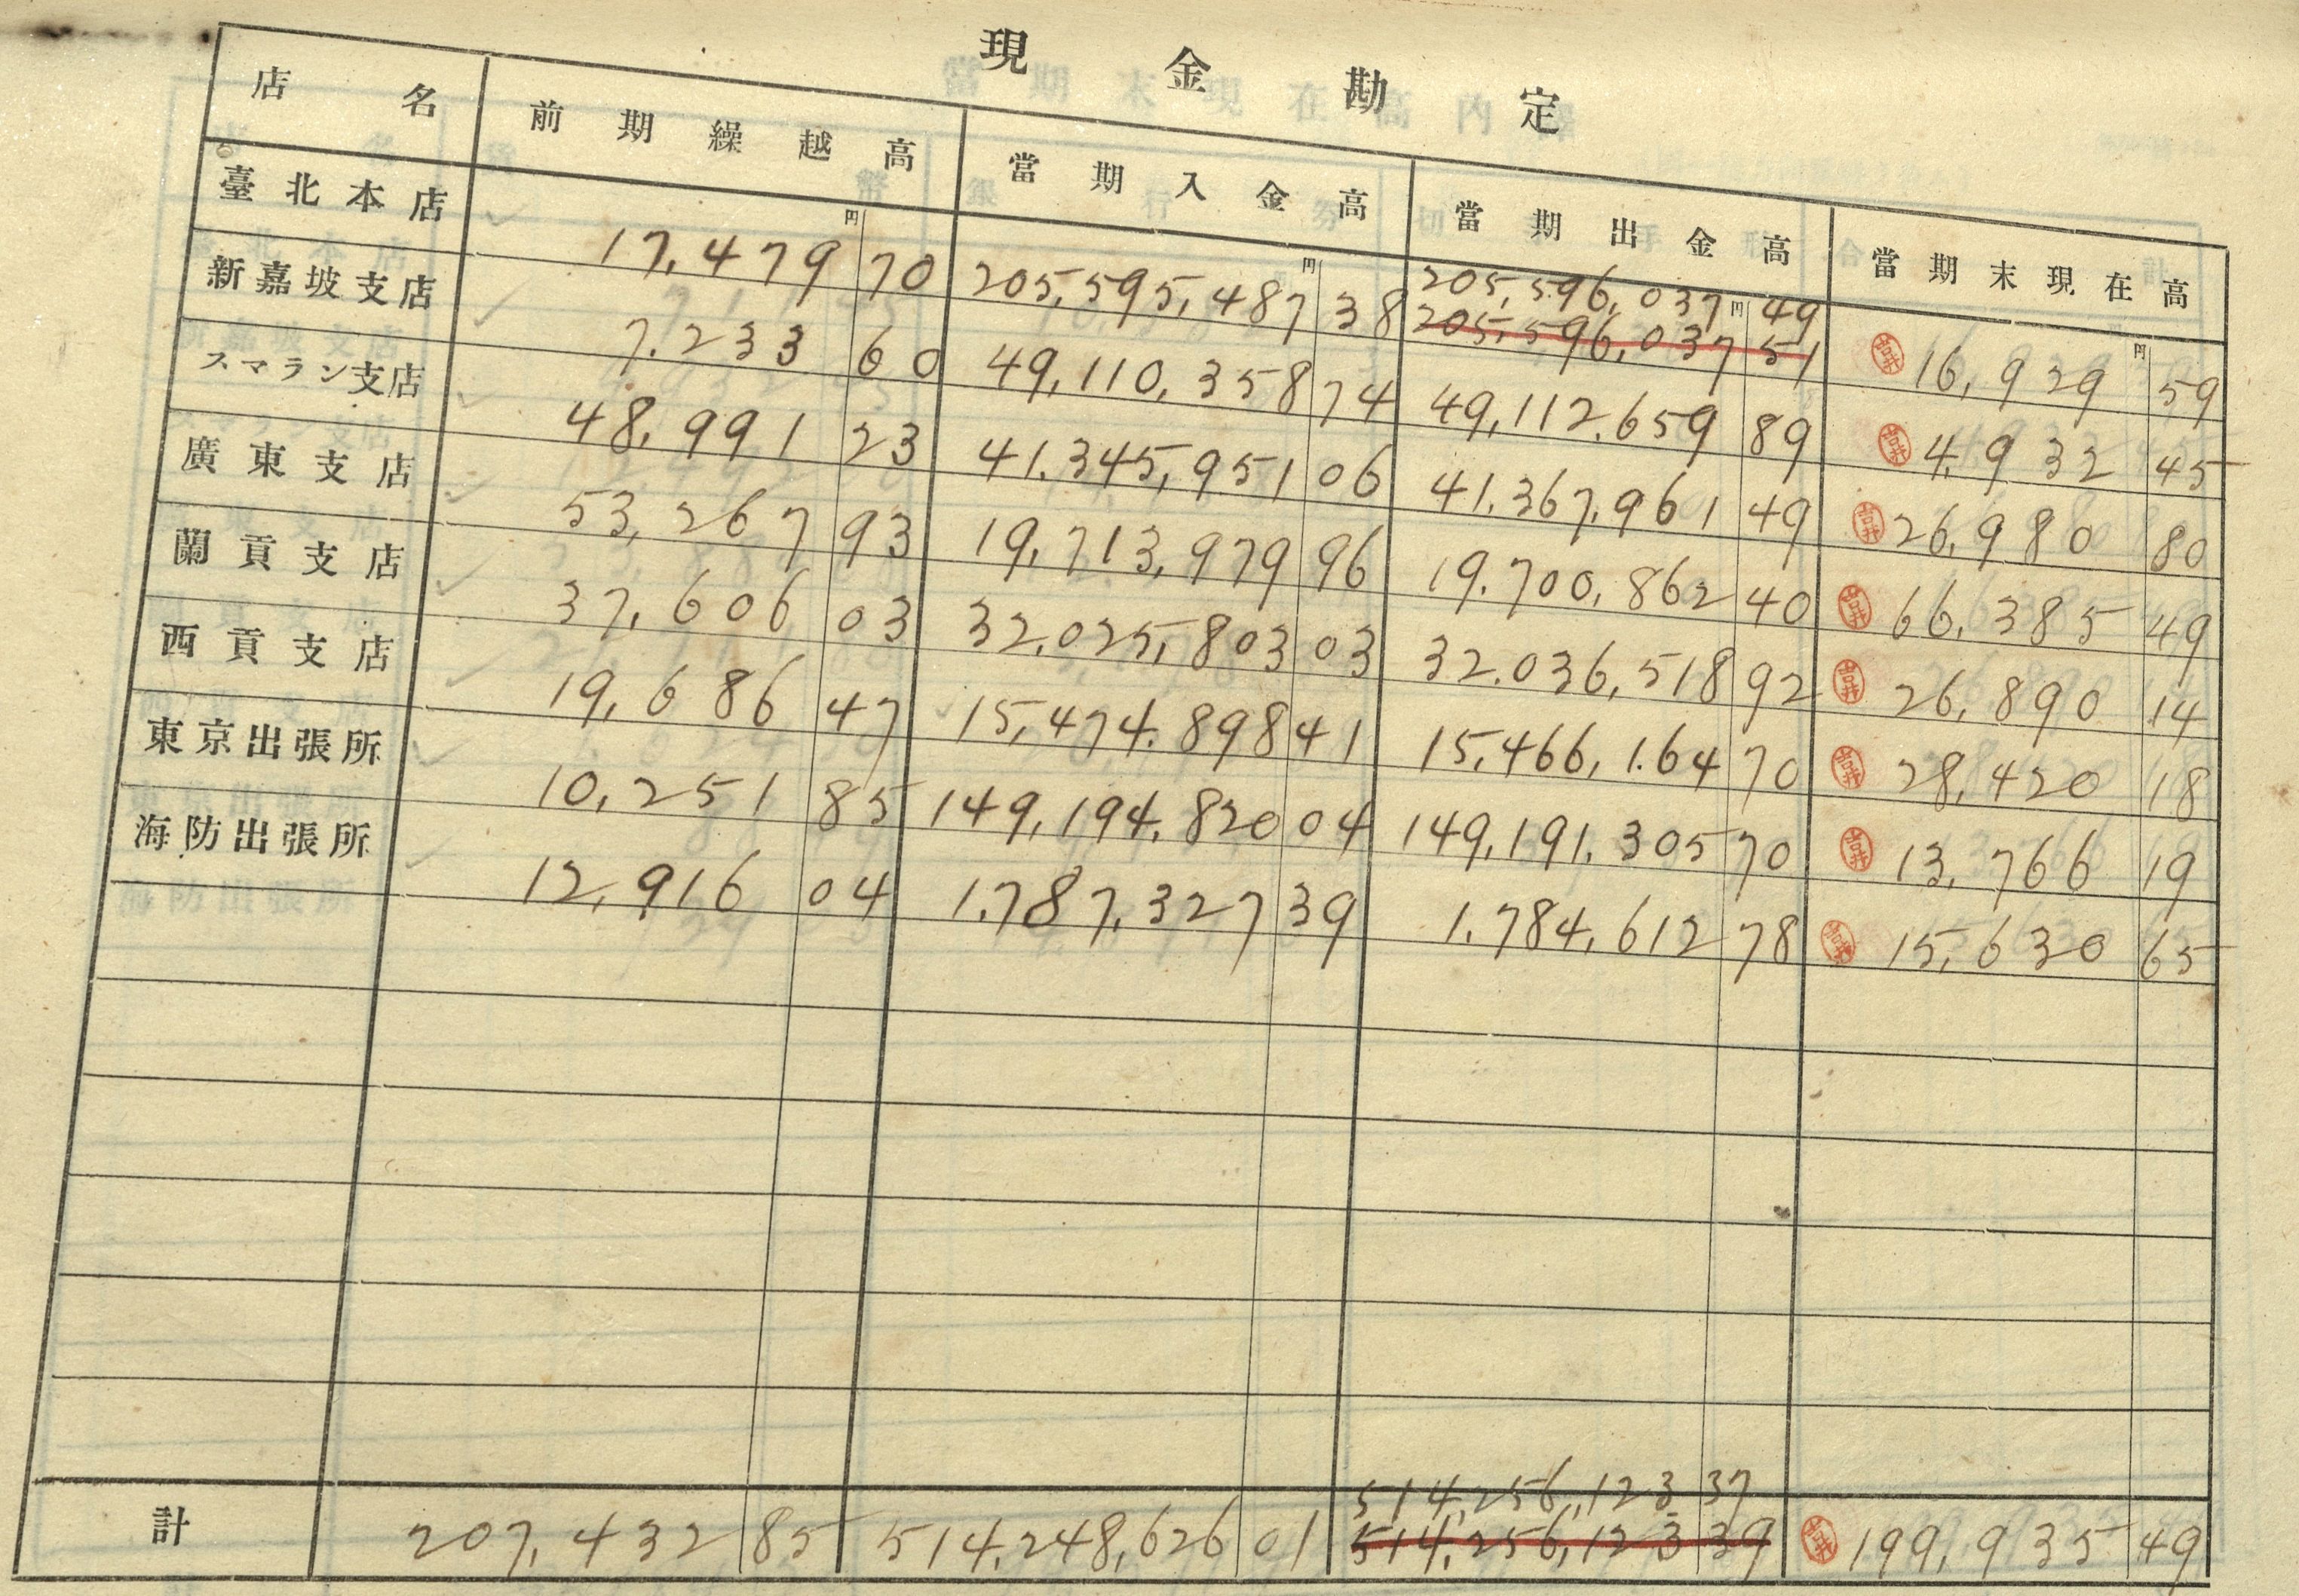 現金勘定
店名 前期繰越高 當期入金高 當期出金高 當期末現在高
円 円 円 円
205,596,037 49
臺北本店 17,479 70 205,595,487 38 205,596,037 51 吉井 16,929 59
新嘉坡支店 7.233 60 49,110,358 74 49,112,659 89 吉井 4,932 45
スマラン支店 48,991 23 41.345,951 06 41.367,961 49 吉井 26,980 80
廣東支店 53,267 93 19,713,979 96 19.700,862 40 吉井 66,385 49
蘭貢支店 37,606 03 32.025,803 03 32.036,518 92 吉井 26,890 14
西貢支店 19,686 47 15,474.898 41 15,466,164 70 吉井 28,420 18
東京出張所 10,251 85 149,194,820 04 149,191,305 70 吉井 13,766 19
海防出張所 12,916 04 1.787,327 39 1.784,612 78 吉井 15,630 65
514,256,123 37
計 207,432 85 514,248,626 01 514,256,123 39 吉井 199,935 49